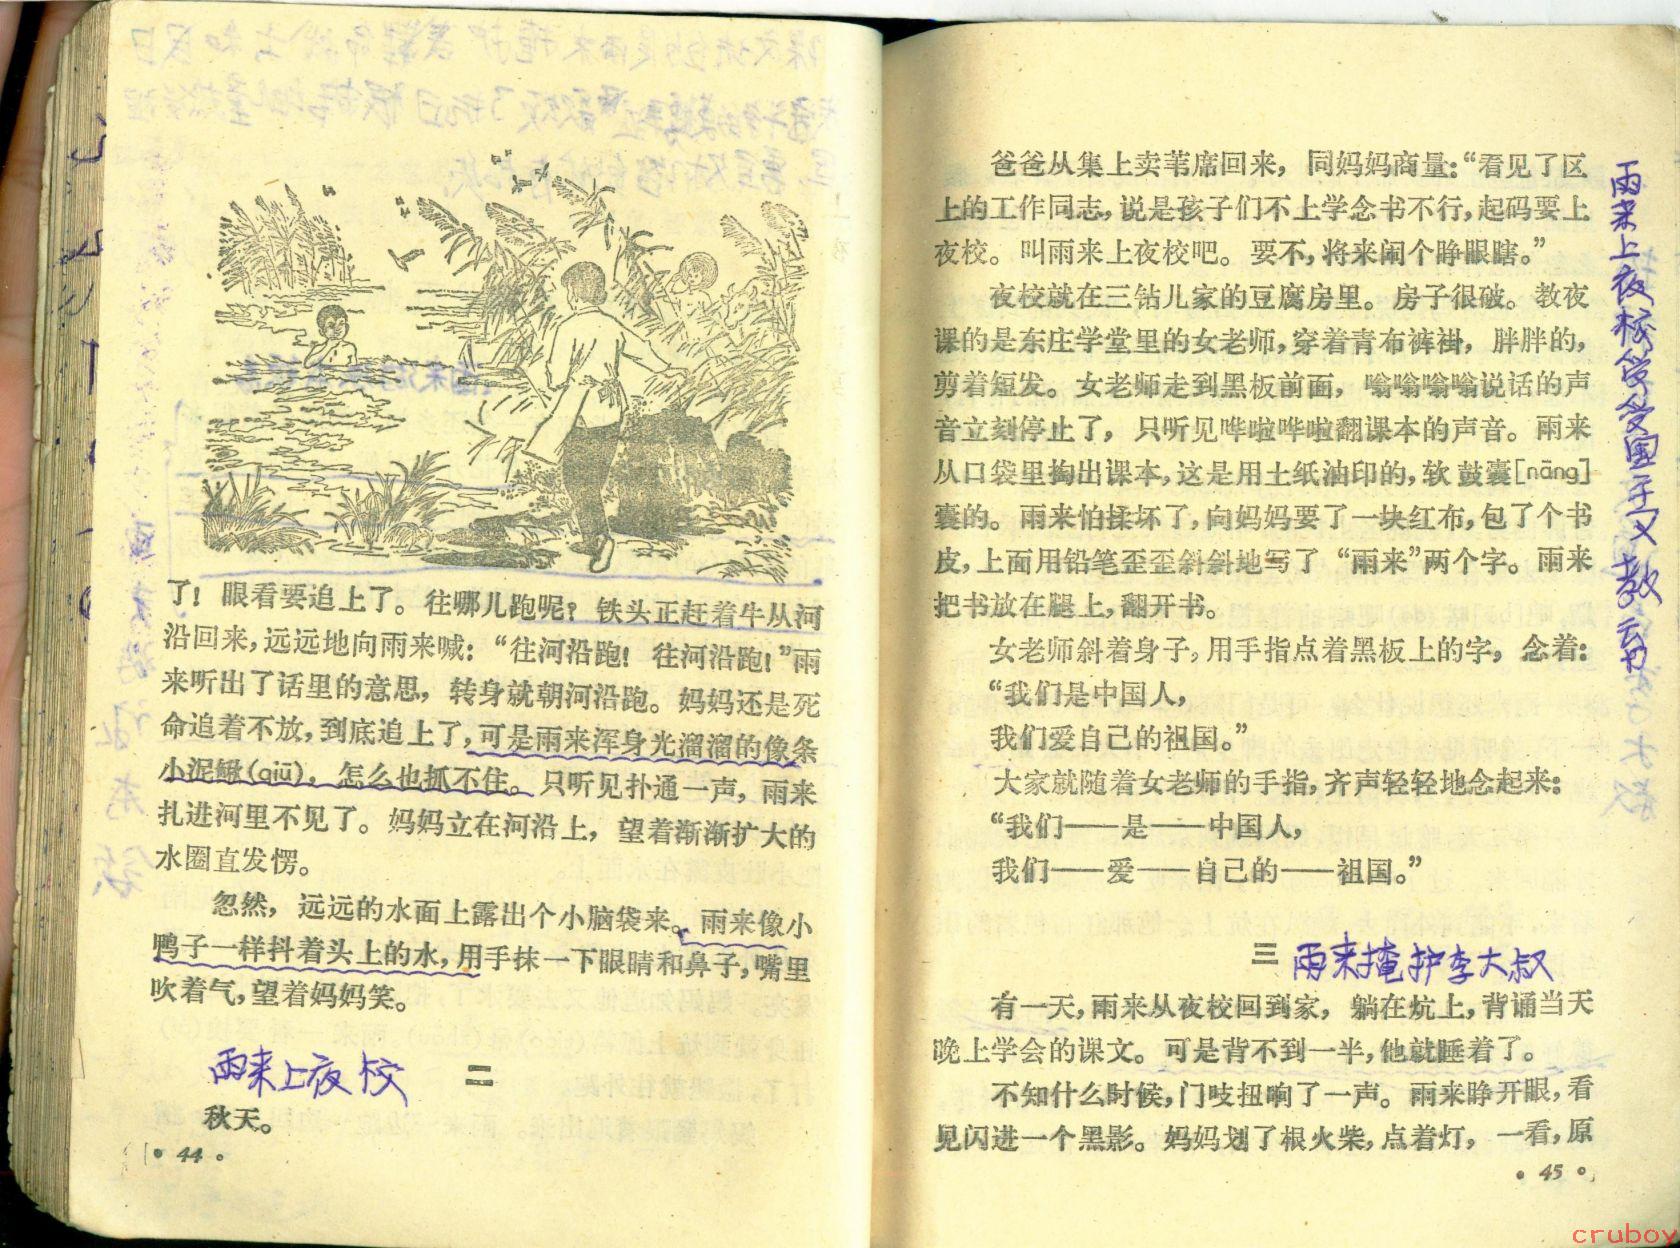 了！眼看要追上了。往哪儿跑呢？铁头正赶着牛从河
沿回来，远远地向雨来喊：“往河沿跑！往河沿跑！”雨
来听出了话里的意思，转身就朝河沿跑。妈妈还是死
命追着不放，到底追上了，可是雨来浑身光溜溜的像条
小泥鳅(qiū)，怎么也抓不住。只听见扑通一声，雨来
扎进河里不见了。妈妈立在河沿上，望着渐渐扩大的
水圈直发愣。
忽然，远远的水面上露出个小脑袋来。雨来像小
鸭子一样抖着头上的水，用手抹一下眼睛和鼻子，嘴里
吹着气，望着妈妈笑。
雨来上夜校 二
秋天。
• 44 •
爸爸从集上卖苇席回来，同妈妈商量：“看见了区
上的工作同志，说是孩子们不上学念书不行，起码要上
夜校。叫雨来上夜校吧。要不，将来闹个睁眼瞎。”
夜校就在三钻儿家的豆腐房里。房子很破。教夜
课的是东庄学堂里的女老师，穿着青布裤褂，胖胖的，
剪着短发。女老师走到黑板前面，嗡嗡嗡嗡说话的声
音立刻停止了，只听见哗啦哗啦翻课本的声音。雨来
从口袋里掏出课本，这是用土纸油印的，软鼓囊[nāng]
囊的。雨来怕揉坏了，向妈妈要了一块红布，包了个书
皮，上面用铅笔歪歪斜斜地写了“雨来”两个字。雨来
把书放在腿上，翻开书。
女老师斜着身子，用手指点着黑板上的字，念着：
“我们是中国人，
我们爱自己的祖国。”
大家就随着女老师的手指，齐声轻轻地念起来：
“我们——是——中国人，
我们——爱——自己的——祖国。”
三 雨来掩护李大叔
有一天，雨来从夜校回到家，躺在炕上，背诵当天
晚上学会的课文。可是背不到一半，他就睡着了。
不知什么时候，门吱扭响了一声。雨来睁开眼，看
见闪进一个黑影。妈妈划了根火柴，点着灯，一看，原
• 45 •
雨来上夜校受爱国主义教育
cruboy